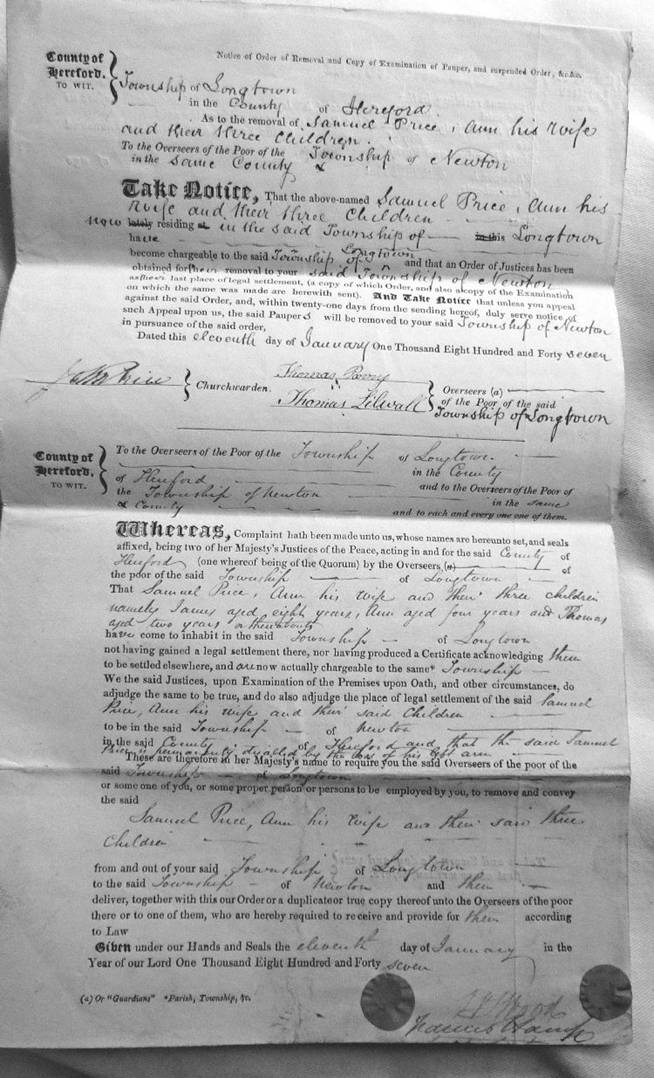 Notice of Order of Removal and Copy of Examination of Pauper, and suspended Order, &c.&c.
County of
Hereford.
TO WIT.
Township of Longtown
in the County of Hereford
As to the removal of Samuel Price, Ann his wife
and their three Children.
To the Overseers of the Poor of the Township of Newton
in the same County &
Take Notice, That the above-named Samuel Price, Ann his
wife and their three Children
now lately residing at in the said Township of in this Longtown
have
become chargeable to the said Township of Longtown and that an Order of Justices has been
obtained for their removal to your said Township of Newton
as their last place of legal settlement, (a copy of which Order, and also a copy of the Examination
on which the same was made are herewith sent). And Take Notice that unless you appeal
against the said Order, and, within twenty-one days from the sending hereof, duly serve notice of
such Appeal upon us, the said Paupers will be removed to your said Township of Newton
in pursuance of the said order,
Dated this eleventh day of January One Thousand Eight Hundred and Forty seven
John Price
Churchwarden.
Thomas Parry
Thomas Lilwall
Overseers (a)
of the Poor of the said
Township of Longtown
County of
Hereford.
TO WIT.
To the Overseers of the Poor of the Township of Longtown
in the County
of Hereford and to the Overseers of the Poor of
the Township of Newton in the same
& County and to each and every one of them.
Whereas, Complaint hath been made unto us, whose names are hereunto set, and seals
affixed, being two of her Majesty's Justices of the Peace, acting in and for the said County of
Hereford (one whereof being of the Quorum) by the Overseers, (a) of
the poor of the said Township of Longtown
That Samuel Price, Ann his wife and their three children
namely James aged eight years, Ann aged four years and Thomas
aged two years or thereabouts
have come to inhabit in the said Township of Longtown
not having gained a legal settlement there, nor having produced a Certificate acknowledging them
to be settled elsewhere, and are now actually chargeable to the same* Township
We the said Justices, upon Examination of the Premises upon Oath, and other circumstances, do
adjudge the same to be true, and do also adjudge the place of legal settlement of the said Samuel
Price, Ann his wife and their said Children
to be in the said Township of Newton
in the said County of Hereford and that the said Samuel
Price is permanently disabled by the loss of his left arm
These are therefore in her Majesty's name to require you the said Overseers of the poor of the
said Township of Longtown
or some one of you, or some proper person or persons to be employed by you, to remove and convey
the said
Samuel Price, Ann his wife and their said three
Children
from and out of your said Township of Longtown
to the said Township of Newton and them
deliver, together with this our Order or a duplicate or true copy thereof unto the Overseers of the poor
there or to one of them, who are hereby required to receive and provide for them according
to Law
Given under our Hands and Seals the eleventh day of January in the
Year of our Lord One Thousand Eight Hundred and Forty seven
(a) Or "Guardians" *Parish, Township, &c.